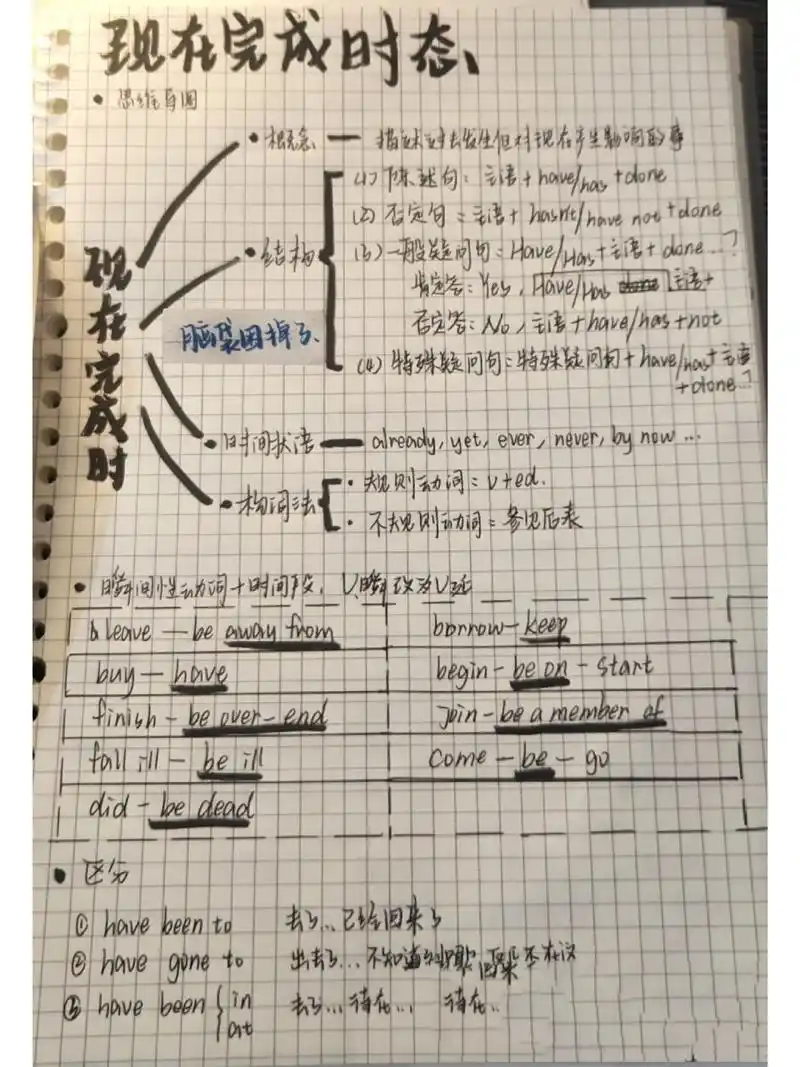 现在完成时态、
• 思维导图
现在完成时
• 概念 — 描述过去发生但对现在产生影响的事
• 结构
(1) 陈述句: 主语 + have/has + done
(2) 否定句 = 主语 + hasn't/have not + done
(3) 一般疑问句 = Have/Has + 主语 + done...?
肯定答: Yes, Have/Has 主语+
否定答: No, 主语 + have/has + not
(4) 特殊疑问句 = 特殊疑问句 + have/has + 主语
+ done...?
脑袋困掉了、
• 时间状语 — already, yet, ever, never, by now ...
• 构词法
• 规则动词 = v+ed.
• 不规则动词 = 参见后表
• 瞬间性动词+时间段, V瞬改为V延
leave — be away from
borrow — keep
buy — have
begin — be on — start
finish — be over — end
join — be a member of
fall ill — be ill
come — be — go
did — be dead
• 区分
① have been to 去了... 已经回来了
② have gone to 出去了... 不知道 否在这
③ have been { in 去了... 待在... 待在..
at